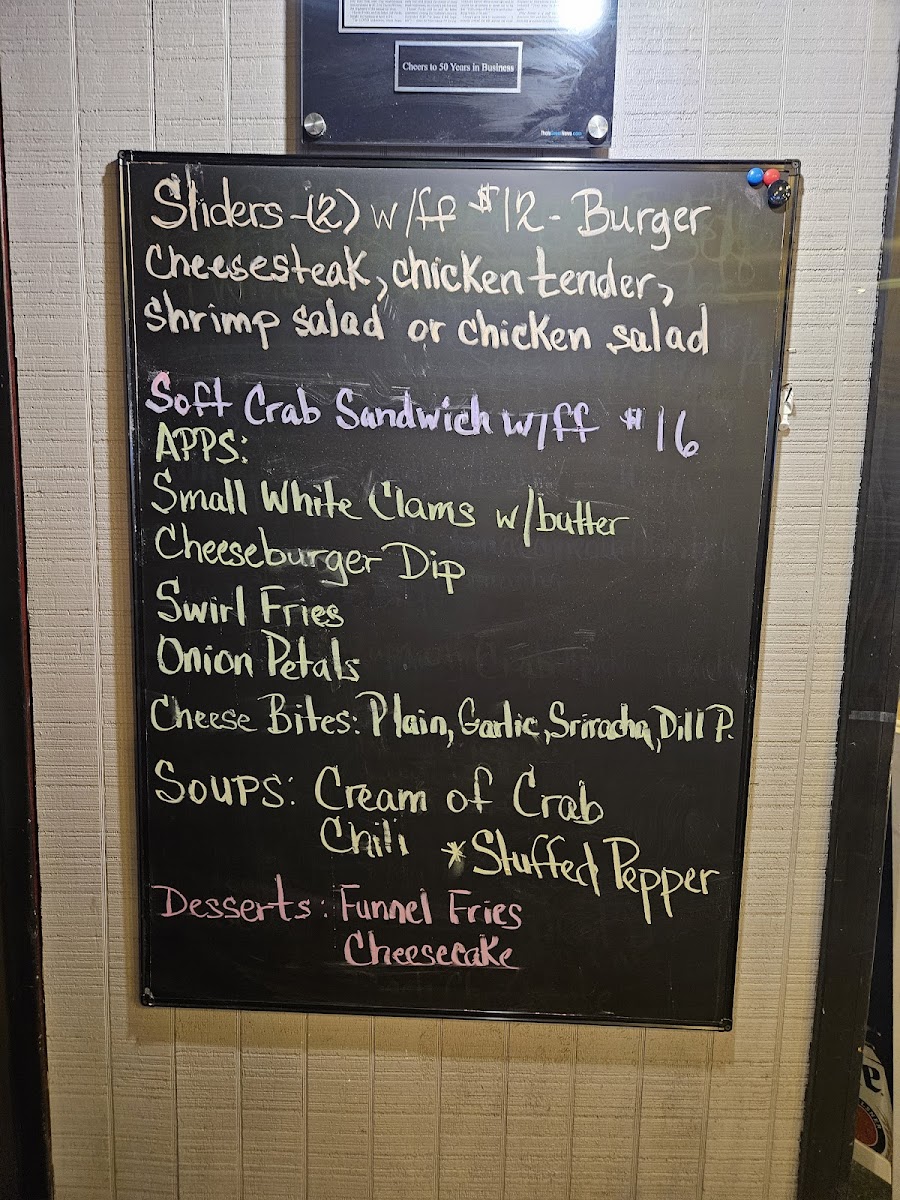 Cheers to 50 Years in Business
Sliders -(2) w/ff $12 - Burger
Cheesesteak, chicken tender,
Shrimp salad or chicken salad
Soft Crab Sandwich w/ff $16
APPS:
Small White Clams w/butter
Cheeseburger Dip
Swirl Fries
Onion Petals
Cheese Bites: Plain, Garlic, Sriracha, Dill P.
SOUPS: Cream of Crab
Chili *Stuffed Pepper
Desserts: Funnel Fries
Cheesecake